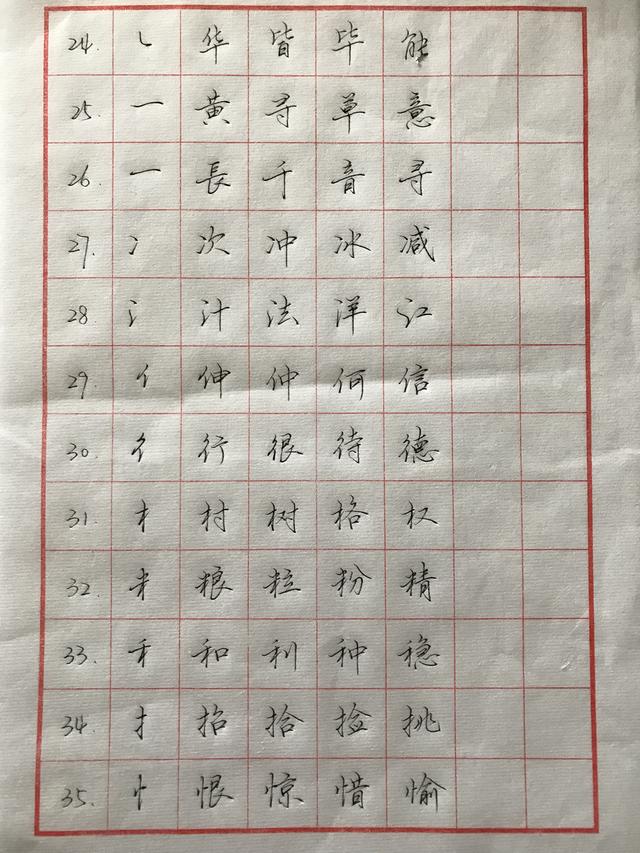 24. ㇃ 华 皆 毕 能
25. 一 黄 寻 草 意
26. 一 長 千 音 寻
27. 冫 次 冲 冰 减
28 氵 汁 法 洋 江
29. 亻 伸 仲 何 信
30. 彳 行 很 待 德
31. 木 村 树 格 权
32. 米 粮 粒 粉 精
33. 禾 和 利 种 稳
34. 扌 招 拾 捡 挑
35. 忄 恨 惊 惜 愉